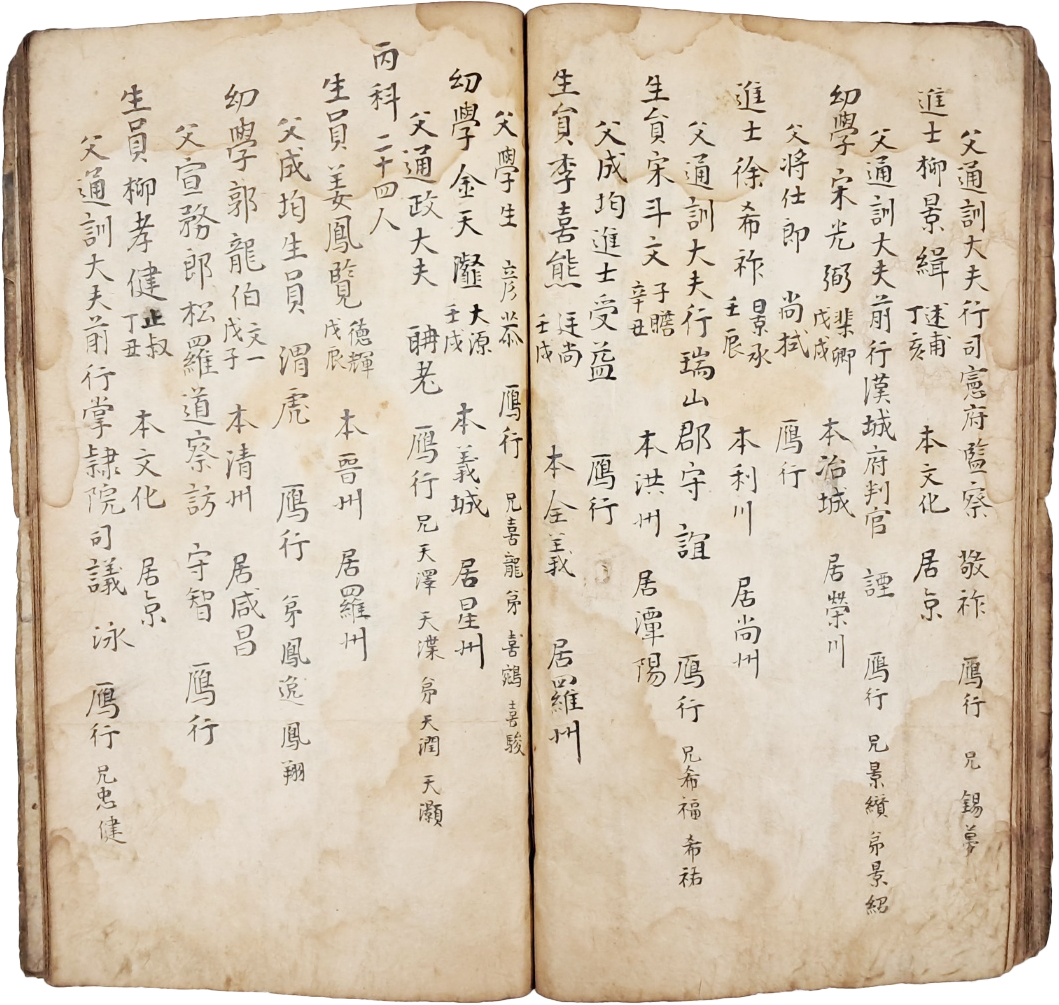 父通訓大夫行司憲府監察 敬祚 鴈行 兄錫夢
進士柳景緝 述甫 丁亥 本文化 居京
父通訓大夫前行漢城府判官 諲 鴈行 兄景纘 弟景紹
幼學宋光弼 棐卿 戊戌 本冶城 居榮川
父將仕郎 尚栻 鴈行
進士徐希祚 景承 壬辰 本利川 居尚州
父通訓大夫行瑞山郡守 誼 鴈行 兄希福 希祐
生員宋斗文 子瞻 辛丑 本洪州 居潭陽
父成均進士受益 鴈行
生員李喜熊 廷尚 壬戌 本全義 居羅州
父學生 彦恭 鴈行 兄喜龍 弟喜鶴 喜駿
幼學金天 大源 壬戌 本義城 居星州
父通政大夫 聃老 鴈行 兄天澤 天渫 弟天潤 天灝
丙科二十四人
生員姜鳳覽 德輝 戊辰 本晋州 居羅州
父成均生員 渭虎 鴈行 弟鳳逸 鳳翔
幼學郭龍伯 文一 戊子 本清州 居咸昌
父宣務郎松羅道察訪 守智 鴈行
生員柳孝健 正叔 丁丑 本文化 居京
父通訓大夫前行掌隷院司議 泳 鴈行 兄忠健